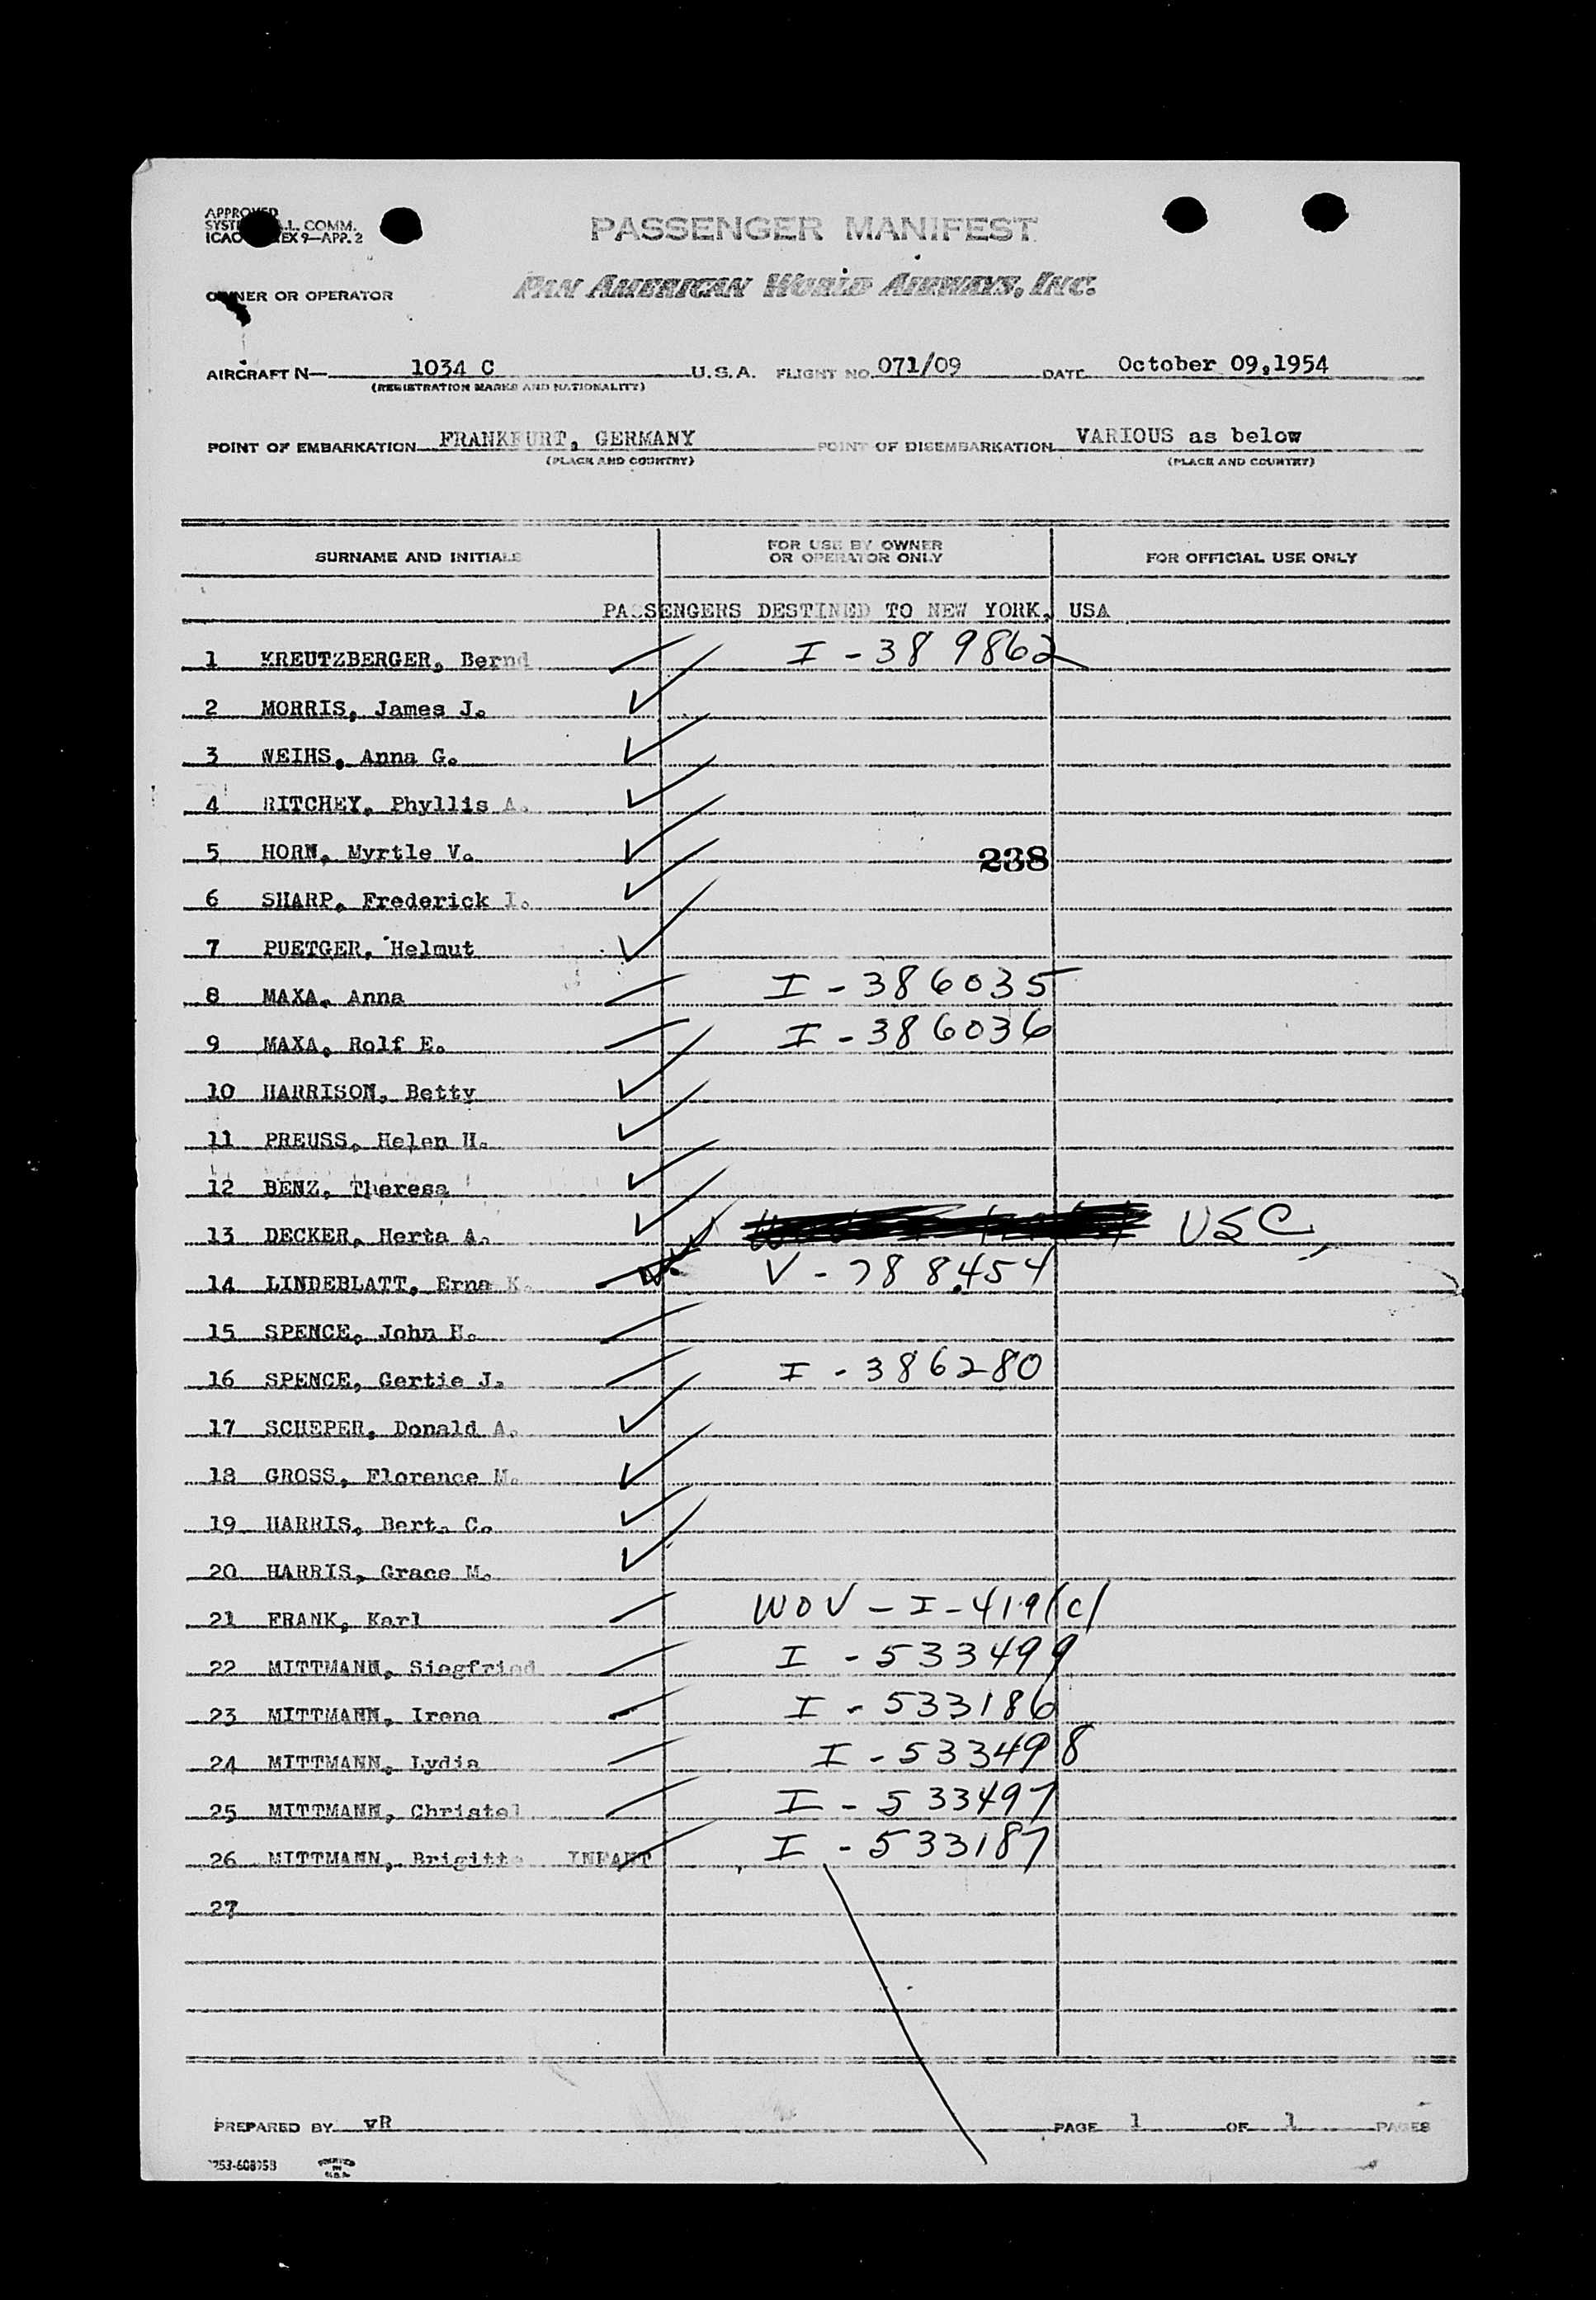 APPROVED
SYSTE L. COMM.
ICAO EX 9—APP. 2
PASSENGER MANIFEST
OWNER OR OPERATOR PAN AMERICAN WORLD AIRWAYS, INC.
AIRCRAFT N— 1034 C U.S.A. FLIGHT NO. 071/09 DATE October 09,1954
(REGISTRATION MARKS AND NATIONALITY)
POINT OF EMBARKATION FRANKFURT, GERMANY POINT OF DISEMBARKATION VARIOUS as below
(PLACE AND COUNTRY) (PLACE AND COUNTRY)
SURNAME AND INITIALS FOR USE BY OWNER OR OPERATOR ONLY FOR OFFICIAL USE ONLY
PASSENGERS DESTINED TO NEW YORK, USA
1 KREUTZBERGER, Bernd I - 389862
2 MORRIS, James J.
3 WEIHS, Anna G.
4 RITCHEY, Phyllis A.
5 HORN, Myrtle V. 238
6 SHARP, Frederick I.
7 PUETGER, Helmut
8 MAXA, Anna I - 386035
9 MAXA, Rolf E. I - 386036
10 HARRISON, Betty
11 PREUSS, Helen H.
12 BENZ, Theresa
13 DECKER, Herta A. USC
14 LINDEBLATT, Erna K. V - 788454
15 SPENCE, John H.
16 SPENCE, Gertie J. I - 386280
17 SCHEPER, Donald A.
18 GROSS, Florence M.
19 HARRIS, Bert. C.
20 HARRIS, Grace M.
21 FRANK, Karl WOV - I - 419(c)
22 MITTMANN, Siegfried I - 533499
23 MITTMANN, Irene I - 533186
24 MITTMANN, Lydia I - 533498
25 MITTMANN, Christel I - 533497
26 MITTMANN, Brigitte INFANT I - 533187
27
PREPARED BY vR PAGE 1 OF 1 PAGES